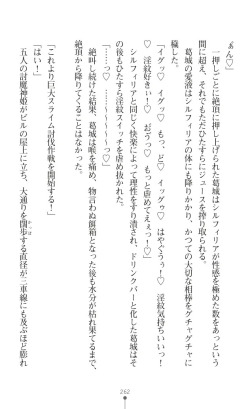 あん♡」
　一押しごとに絶頂に押し上げられた葛城が性感を極めた数をあっという
間に超え、それでもただひたすらにジュースを搾り取られる。
　葛城の愛液はシルフィリアの体にも降りかかり、かつての大切な相棒をグチャグチャに
穢した。
「イグッ♡　イグッ♡　もっ、ど♡　イッグゥ♡　はやぐぅぅ！♡　淫紋気持ちいいっ！
♡　淫紋好きぃ！♡　おうっ♡　もっと虐めてえぇっ！♡」
　シルフィリアと同じく快楽によって理性をすり潰され、ドリンクバーと化した葛城はそ
の後もひたすら淫紋スイッチを虐め抜かれた。
「――っ♡　……♡　～～～～～っ♡」
　絶叫し続けた結果、葛城は喉を痛め、物言わぬ餌箱となった後も水分が枯れ果てるまで、
絶頂から降りてくることはなかった。
「これより巨大スライム討伐作戦を開始する！」
「はい！」
　五人の討魔神姫がビルの屋上に立ち、大通りを闊歩する直径が二車線にも及ぶほど膨れ
262